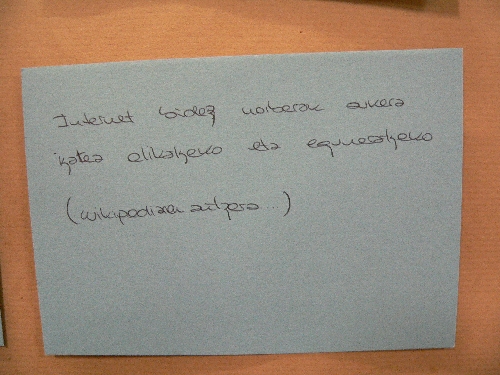 Internet bidez norberak aukera
izatea elikatzeko eta eguneratzeko
(wikipediaren antzera...)